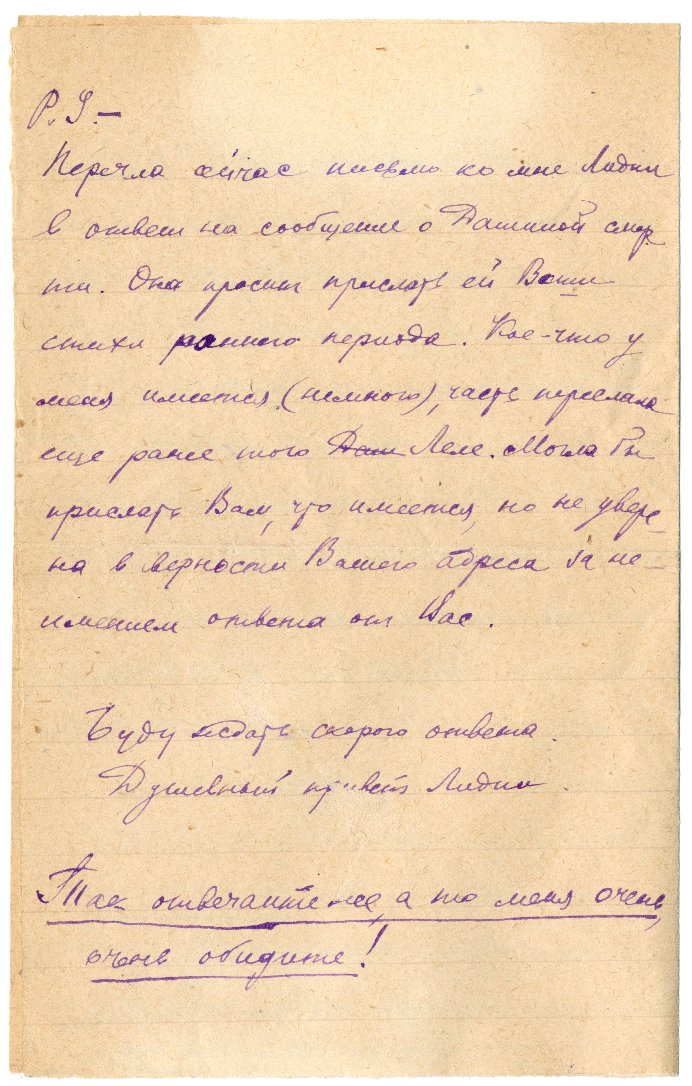 P.S.—
Перечла сейчас письмо ко мне Лидии
в ответ на сообщение о Дашиной смер
ти. Она просит прислать ей Ваши
стихи раннего периода. Кое-что у
меня имеется (немного), часть переслала
еще ранее того Даш Леле. Могла бы
прислать Вам, что имеется, но не увере-
на в верности Вашего адреса за не-
имением ответа от Вас.
Буду ждать скорого ответа.
Душевный привет Лидии.
Так отвечайте же, а то меня очень,
очень обидите!